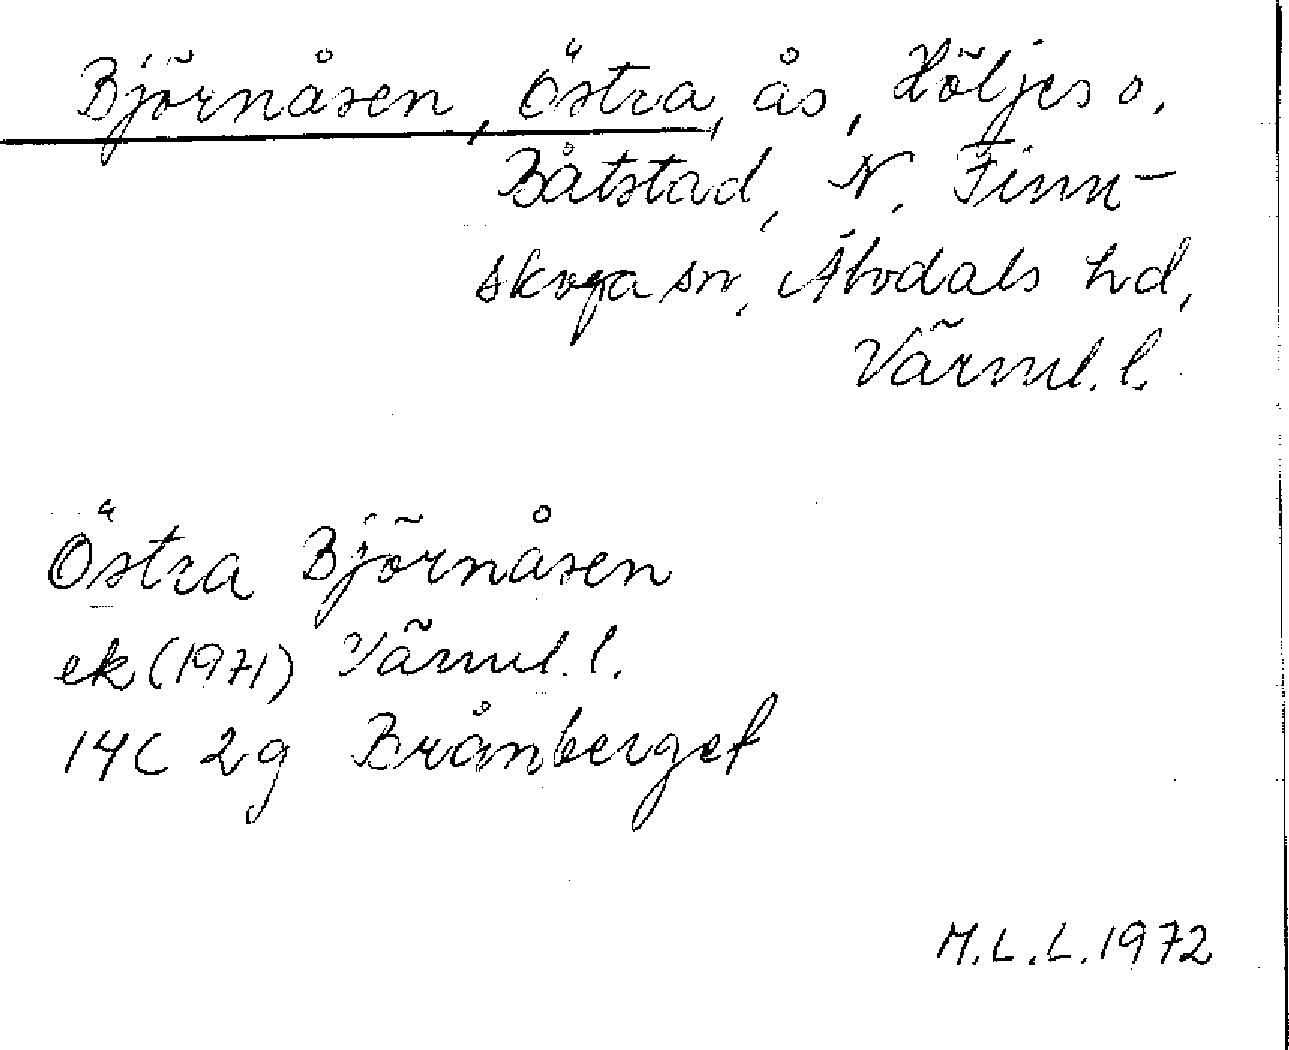 Björnåsen, Östra, ås, Höljes o.
Båtstad, N. Finn-
skoga sn, Älvdals hd,
Värml. l.
Östra Björnåsen
ek (1971) Värml. l.
14C 2g Brånberget
M.L.L. 1972